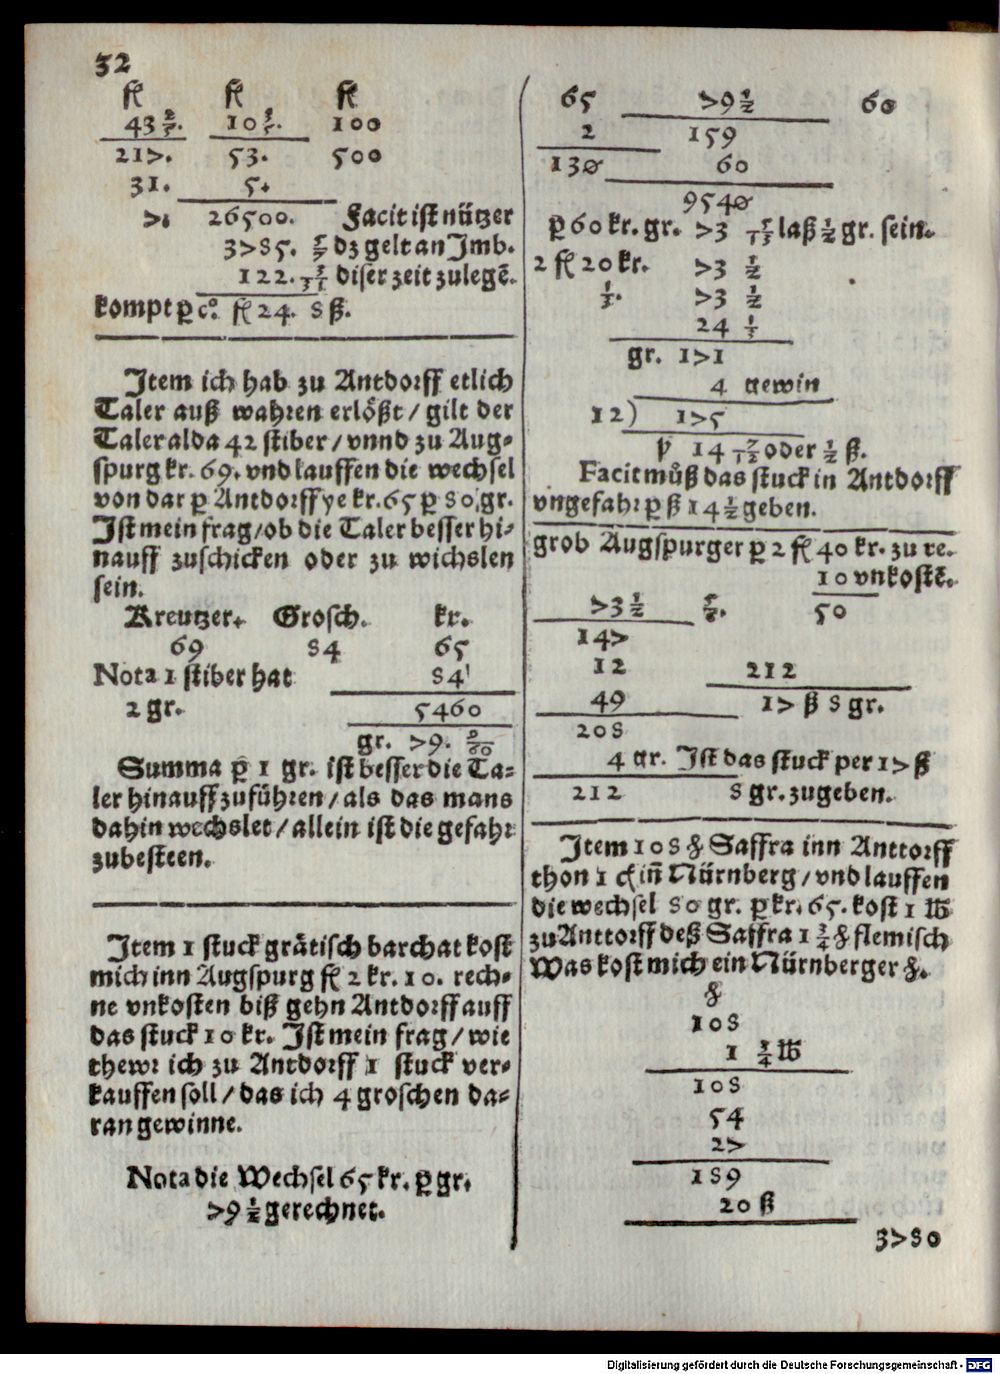 32
fl fl fl
43 2/5. 10 3/5. 100
217. 53. 500
31. 5.
7. 26500. Facit ist nützer
3785. 5/7 dz gelt an Jmb.
122. diser zeit zulegē.
kompt p co. fl 24. 8 ß.
Jtem ich hab zu Antdorff etlich
Taler auß wahren erlößt / gilt der
Taler alda 42 stiber / vnnd zu Aug-
spurg kr. 69. vnd lauffen die wechsel
von dar p Antdorff ye kr. 65 p 80. gr.
Jst mein frag / ob die Taler besser hi-
nauff zuschicken oder zu wichslen
sein.
Kreutzer. Grosch. kr.
69 84 65
Nota 1 stiber hat 84
2 gr. 5460
gr. 79. 9/60
Summa p 1 gr. ist besser die Ta-
ler hinauff zuführen / als das mans
dahin wechslet / allein ist die gefahr
zubesteen.
Jtem 1 stuck grätisch barchat kost
mich inn Augspurg fl 2 kr. 10. rech-
ne vnkosten biß gehn Antdorff auff
das stuck 10 kr. Jst mein frag / wie
thewr ich zu Antdorff 1 stuck ver-
kauffen soll / das ich 4 groschen da-
ran gewinne.
Nota die Wechsel 65 kr. p gr.
79 1/2 gerechnet.
65 79 1/2 60
2 159
130 60
9540
p 60 kr. gr. 73 5/13 laß 1/2 gr. sein.
2 fl 20 kr. 73 1/2
1/3. 73 1/2
24 1/3
gr. 171
4 gewin
12) 175
ß 14 7/12 oder 1/2 ß.
Facit müß das stuck in Antdorff
vngefahr p ß 14 1/2 geben.
grob Augspurger p 2 fl 40 kr. zu re.
10 vnkostē.
73 1/2 50
147
12 212
49 17 ß 8 gr.
208
4 gr. Jst das stuck per 17 ß
212 8 gr. zugeben.
Jtem 108 ℔ Saffra inn Anttorff
thon 1 cȷ̃ iñ Nürnberg / vnd lauffen
die wechsel 80 gr. p kr. 65. kost 1 ℔
zu Anttorff deß Saffra 1 3/4 ℔ flemisch
Was kost mich ein Nürnberger ℔.
℔
108
1 3/4 ℔
108
54
27
189
20 ß
3780
Digitalisierung gefördert durch die Deutsche Forschungsgemeinschaft - DFG